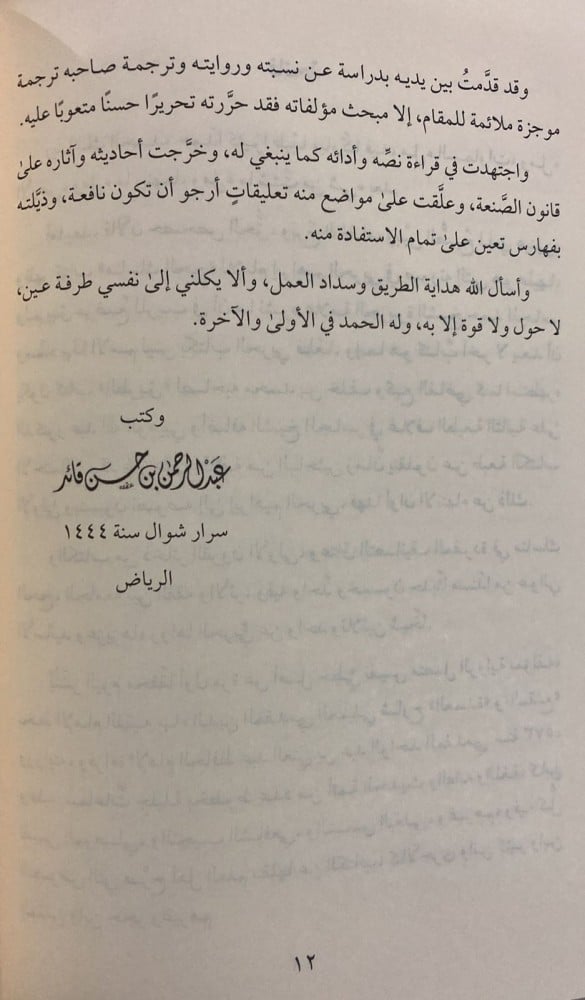 وقد قدَّمتُ بين يديه بدراسة عن نسبته وروايته وترجمة صاحبه ترجمة
موجزة ملائمة للمقام، إلا مبحث مؤلفاته فقد حرَّرته تحريرًا حسنًا متعوبًا عليه.
واجتهدت في قراءة نصِّه وأدائه كما ينبغي له، وخرَّجت أحاديثه وآثاره علىٰ
قانون الصَّنعة، وعلَّقت علىٰ مواضع منه تعليقاتٍ أرجو أن تكون نافعة، وذيَّلته
بفهارس تعين علىٰ تمام الاستفادة منه.
وأسأل الله هداية الطريق وسداد العمل، وألا يكلني إلىٰ نفسي طرفة عين،
لا حول ولا قوة إلا به، وله الحمد في الأولىٰ والآخرة.
وكتب
عبد الرحمن بن حسن قائد
سرار شوال سنة ١٤٤٤
الرياض
١٢